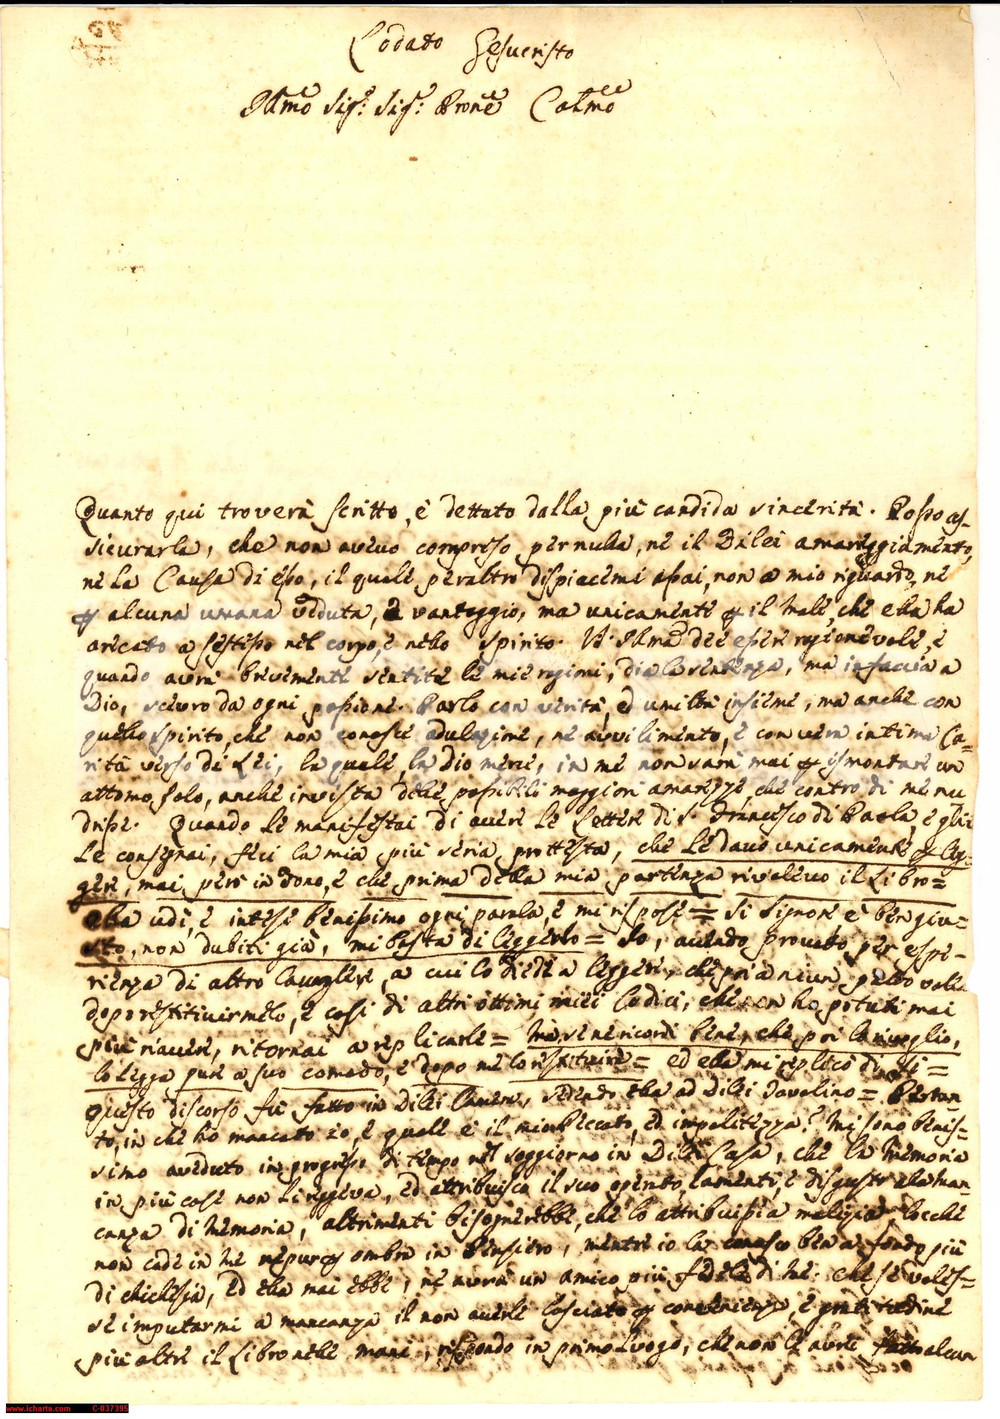 Lodato Gesucristo
Illmo Sigr: Sigr: Prone Colmo
Quanto qui troverà scritto, è dettato dalla più candida sincerità. Posso as-
sicurarla, che non avevo compreso per nulla, nè il Dilei amareggiamento,
nè la Causa di esso, il quale peraltro dispiacemi assai, non a mio riguardo, nè
alcuna umana veduta, è vantaggio, ma unicamente il male, che ella ha
arecato a sestesso nel corpo, è nello spirito. V. Illma deè essere ragionevole, è
quando averà brevemente sentite le mie ragioni, dia la sentenza, ma in faccia a
Dio, scevro da ogni passione. Parlo con verità, ed umiltà insieme, ma anche con
quello spirito, che non conosce adulazione, nè avvilimento, è con vera intima Ca-
rità verso di Lei, la quale, la Dio mercè, in me non sarà mai ismontare un
attomo solo, anche in vista delle possibili maggiori amarezze, che contro di me nu
drisse. Quando le manifestai di avere le Lettere di S. Francesco di Paola, è glie
Le consegnai, feci la mia più seria prottesta, che Le davo unicamente leg-
gere, mai però in dono, è che prima della mia partenza rivolevo il Libro=
ella udì, è intese benissimo ogni parola, è mi rispose= Si Signore è ben giu-
sto, non dubiti già, mi basta di leggerlo= Io, avendo provato per espe-
rienza di altro Cavaliere, a cui lo diedi a leggere, che poi a niun patto volle
doporestituirmelo, è così di altri ottimi miei Codici, che non ho potuti mai
più riavere, ritornai a replicarle= Ma sene ricordi bene, che poi lo rivoglio,
lo legga pure a suo comodo, è dopo me lo restituirà= ed ella mi replicò di Si=
questo discorso fù fatto in Dilei Camera, sedendo ella ad Dilei Tavolino= Pertan-
to, in che ho mancato io, è quale è il mio Peccato, ed impolitezza? Mi sono benis-
simo aveduto in progresso di tempo nel soggiorno in Dilei Casa, che la Memoria
in più cose non Li reggeva, ed attribuisco il suo operato, lamenti, è disgusti alla man-
canza di Memoria, altrimenti bisognerebbe, che lo attribuissi a malizia, locche
non cade in me nepure ombra in Pensiero, mentre io la conosco ben a fondo più
di chichesia, ed ella mai ebbe, nè averà un amico più fedele di me. Che se voles-
se imputarmi a mancanza il non averle lasciato convenienza, è gratitudine
più altri il Libro nelle mani, rispondo in primo Luogo, che non le avrei fatto alcun
www.icharta.com C-037395